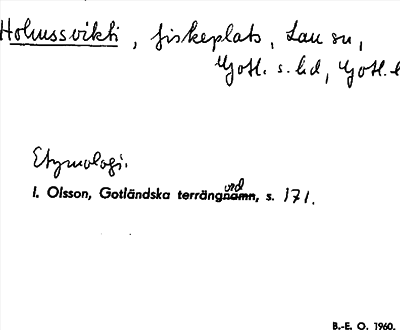 Holmssvikti, fiskeplats, Lau sn,
Gotl. s. hd, Gotl. l
Etymologi.
I. Olsson, Gotländska terrängnamn ord, s. 171.
B.-E. O. 1960.